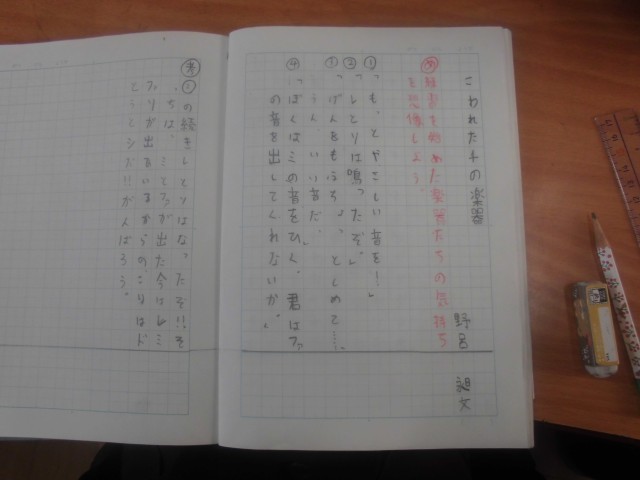 こわれた千の楽器
野呂 昶 文
め 練習を始めた楽器たちの気持ち
を想像しよう。
①「も、とやさしい音を!」
②「レとソは鳴ったぞ。」
③「げんをもうちょっとしめて…。
うん、いい音だ。」
④「ぼくはミの音をひく。君はファ
の音を出してくれないか。」
考 ①の続きレとソはなったぞ!!そ
ちは、ミと が出た今はレミ
ファソが出るいるからのこりはド
とラとシだ!!がんばろう。